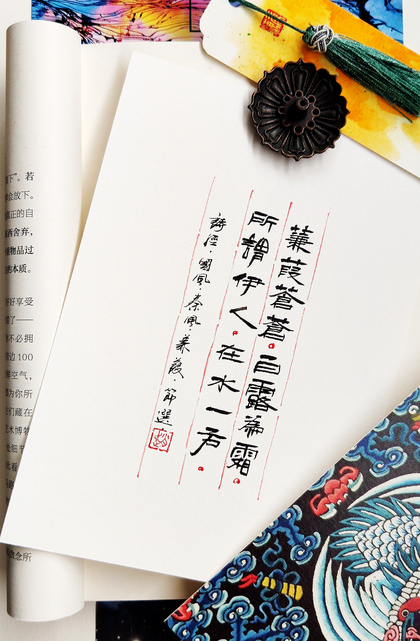 蒹葭蒼蒼。白露為霜
所謂伊人。在水一方。
詩經·國風·秦風·蒹葭·節選
下”。若
放下。
正的自
舍弃，
物品过
的本质。
好享受
了——
不必拥
边100
空气，
为你所
们藏在
术博物